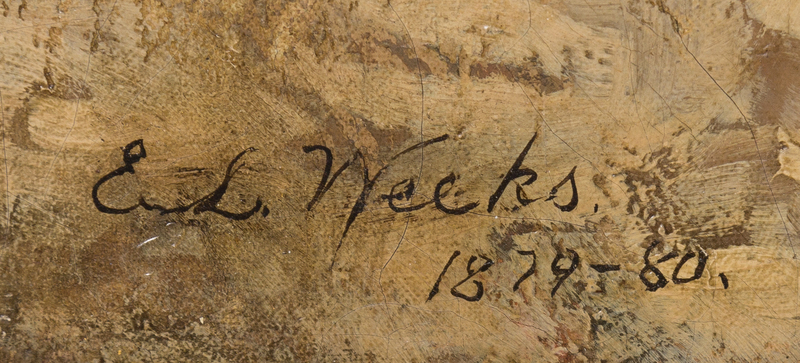 E. L. Weeks.
1879-80.